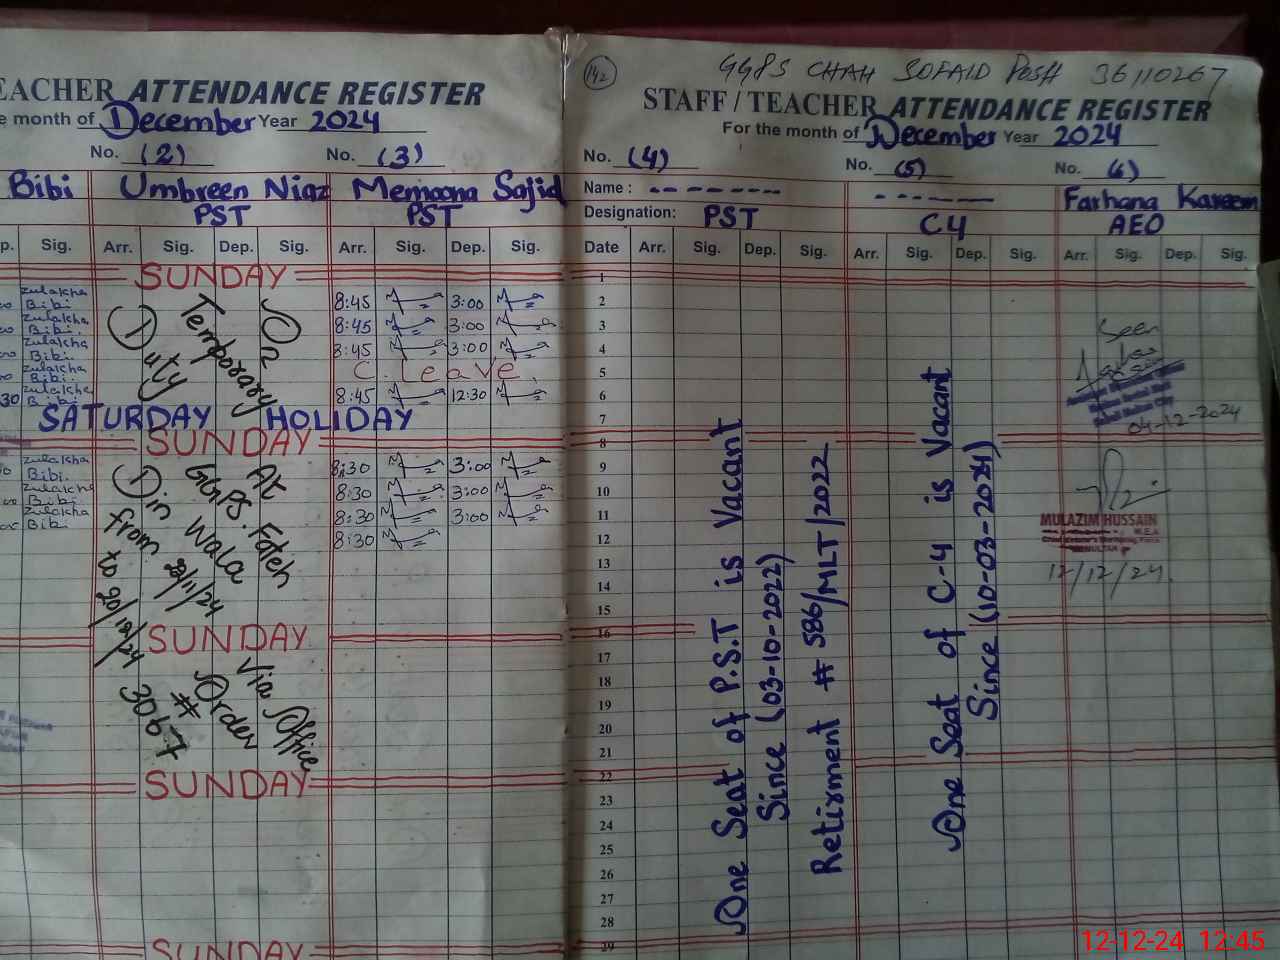 EACHER ATTENDANCE REGISTER
e month of December Year 2024
No. (2) No. (3)
Bibi Umbreen Niaz Memoona Sajid
PST PST
p. Sig. Arr. Sig. Dep. Sig. Arr. Sig. Dep. Sig.
SUNDAY
zulakha
Bibi 8:45 3:00
zulakha
Bibi. 8:45 3:00
zulakha
Bibi. 8:45 3:00
zulakha
Bibi. C. Leave
zulakha
30 Bibi 8:45 12:30
On
Temporary
Duty
SATURDAY HOLIDAY
SUNDAY
zulakha
Bibi. 8:30 3:00
zulakha
Bibi 8:30 3:00
zulakha
Bibi 8:30 3:00
8:30
At
GGPS. Fateh
Din Wala
from 21/11/24
to 20/12/24
SUNDAY
via Office
Order
#
3067
SUNDAY
SUNDAY
142
GGPS CHAH SOFAID POSH 36110267
STAFF / TEACHER ATTENDANCE REGISTER
For the month of December Year 2024
No. (4) No. (5) No. (6)
Name : - - - - - - - - - - - - - - Farhana Kareem
Designation: PST C4 AEO
Date Arr. Sig. Dep. Sig. Arr. Sig. Dep. Sig. Arr. Sig. Dep. Sig.
1
2
3
4
5
6
7
8
9
10
11
12
13
14
15
16
17
18
19
20
21
22
23
24
25
26
27
28
29
One Seat of P.S.T is Vacant
Since (03-10-2022)
Retirment # 586/MLT/2022
One Seat of C-4 is Vacant
Since (10-03-2024)
Seen
04-12-2024
MULAZIM HUSSAIN
M.E.A
MULTAN
12/12/24
12-12-24 12:45